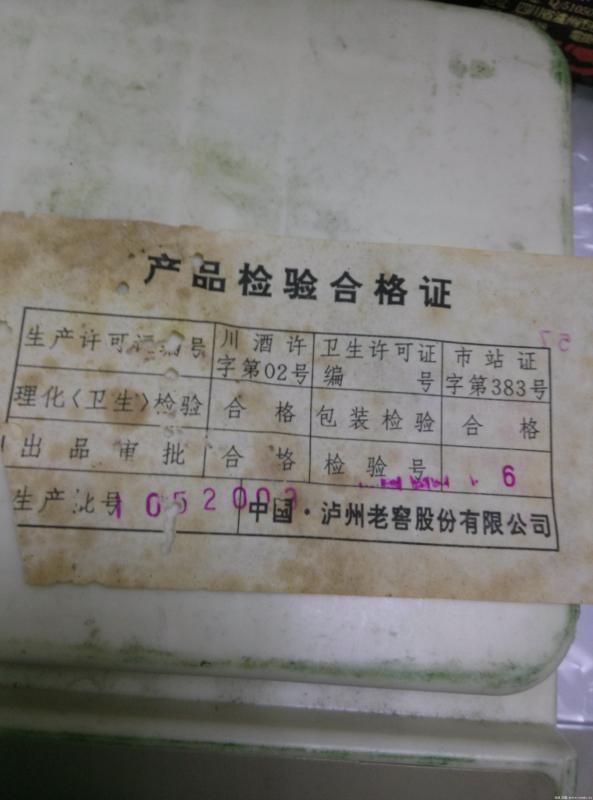 产品检验合格证
生产许可证编号 川酒许字第02号 卫生许可证编号 市站证字第383号
理化〈卫生〉检验 合格 包装检验 合格
出品审批 合格 检验号 6
生产批号 1052003 中国·泸州老窖股份有限公司
57